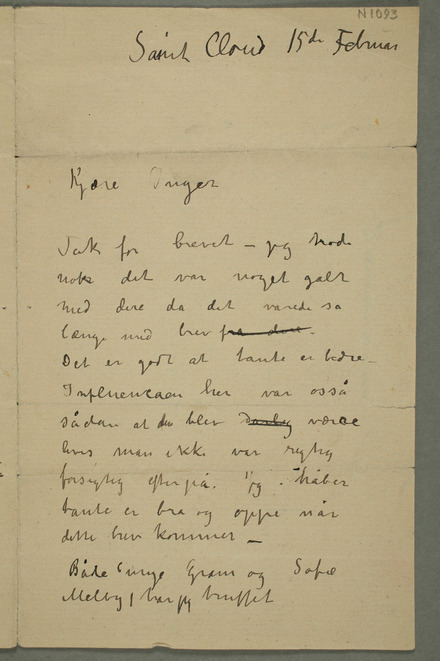 N1093
Saint Cloud 15de Februar
Kjære Inger
Tak for brevet – jeg trode
nok det var noget galt
med dere da det varede så
længe med brev fra dere.
Det er godt at tante er bedre –
Influencaen her var også
sådan at den blev Darlig værre
hvis man ikke var rigtig
forsigtig efterpå. jeg håber
tante er bra og oppe når
dette brev kommer –
Både Gram og Sofie
Melbye har jeg truffet